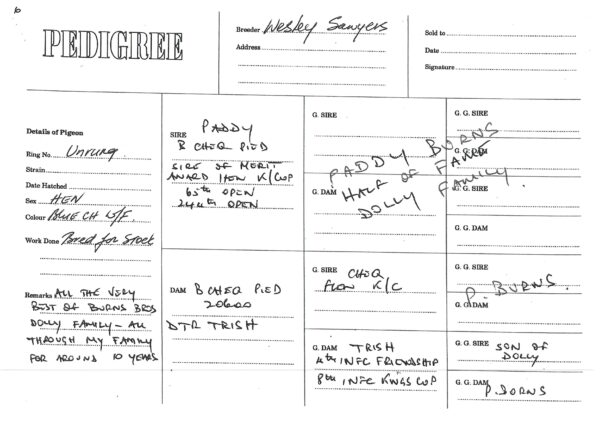 PEDIGREE
Breeder Wesley Sawyers
Address
Sold to
Date
Signature
Details of Pigeon
Ring No. Unrung
Strain
Date Hatched
Sex HEN
Colour BLUE CH W/F.
Work Done Bred for Stock
Remarks ALL THE VERY
BEST OF BURNS BROS
DOLLY FAMILY - ALL
THROUGH MY FAMILY
FOR AROUND 10 YEARS
SIRE
PADDY
B CHEQ PIED
SIRE OF MERIT
AWARD HEN K/CUP
65th OPEN
244th OPEN
DAM B CHEQ PIED
20600
DTR TRISH
G. SIRE
PADDY BURNS
HALF OF
DOLLY FAMILY
G. DAM
G. SIRE CHEQ
FLOW K/C
G. DAM TRISH
4th INFC FRIENDSHIP
8th INFC KINGS CUP
G. G. SIRE
G. G. DAM
G. G. SIRE
G. G. DAM
G. G. SIRE
P. BURNS.
G. G. DAM
G. G. SIRE SON OF
DOLLY
G. G. DAM
P. BORNS